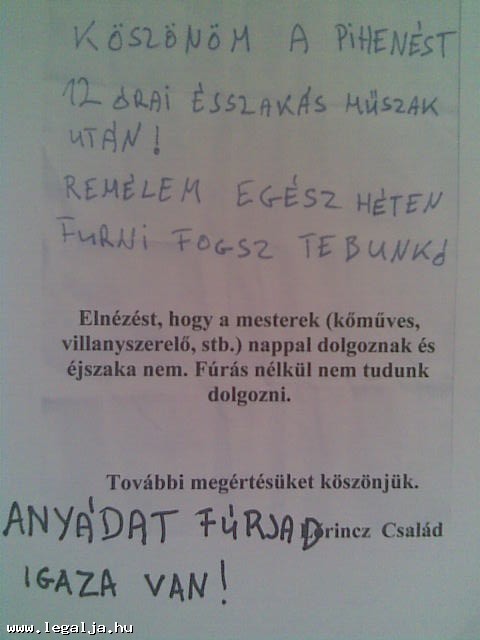 KÖSZÖNÖM A PIHENÉST
12 ÓRAI ÉSSZAKÁS MŰSZAK
UTÁN!
REMÉLEM EGÉSZ HÉTEN
FURNI FOGSZ TE BUNKÓ
Elnézést, hogy a mesterek (kőműves,
villanyszerelő, stb.) nappal dolgoznak és
éjszaka nem. Fúrás nélkül nem tudunk
dolgozni.
További megértésüket köszönjük.
Lőrincz Család
ANYÁDAT FÚRJAD
IGAZA VAN!
www.legalja.hu